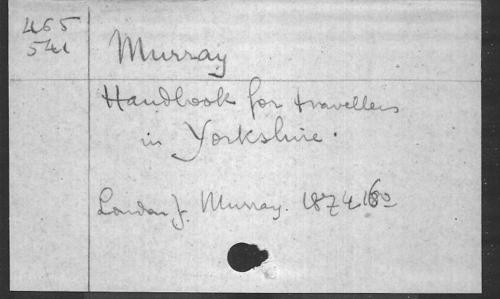 465
541
Murray
Handbook for travellers
in Yorkshire.
London J. Murray. 1874 16o